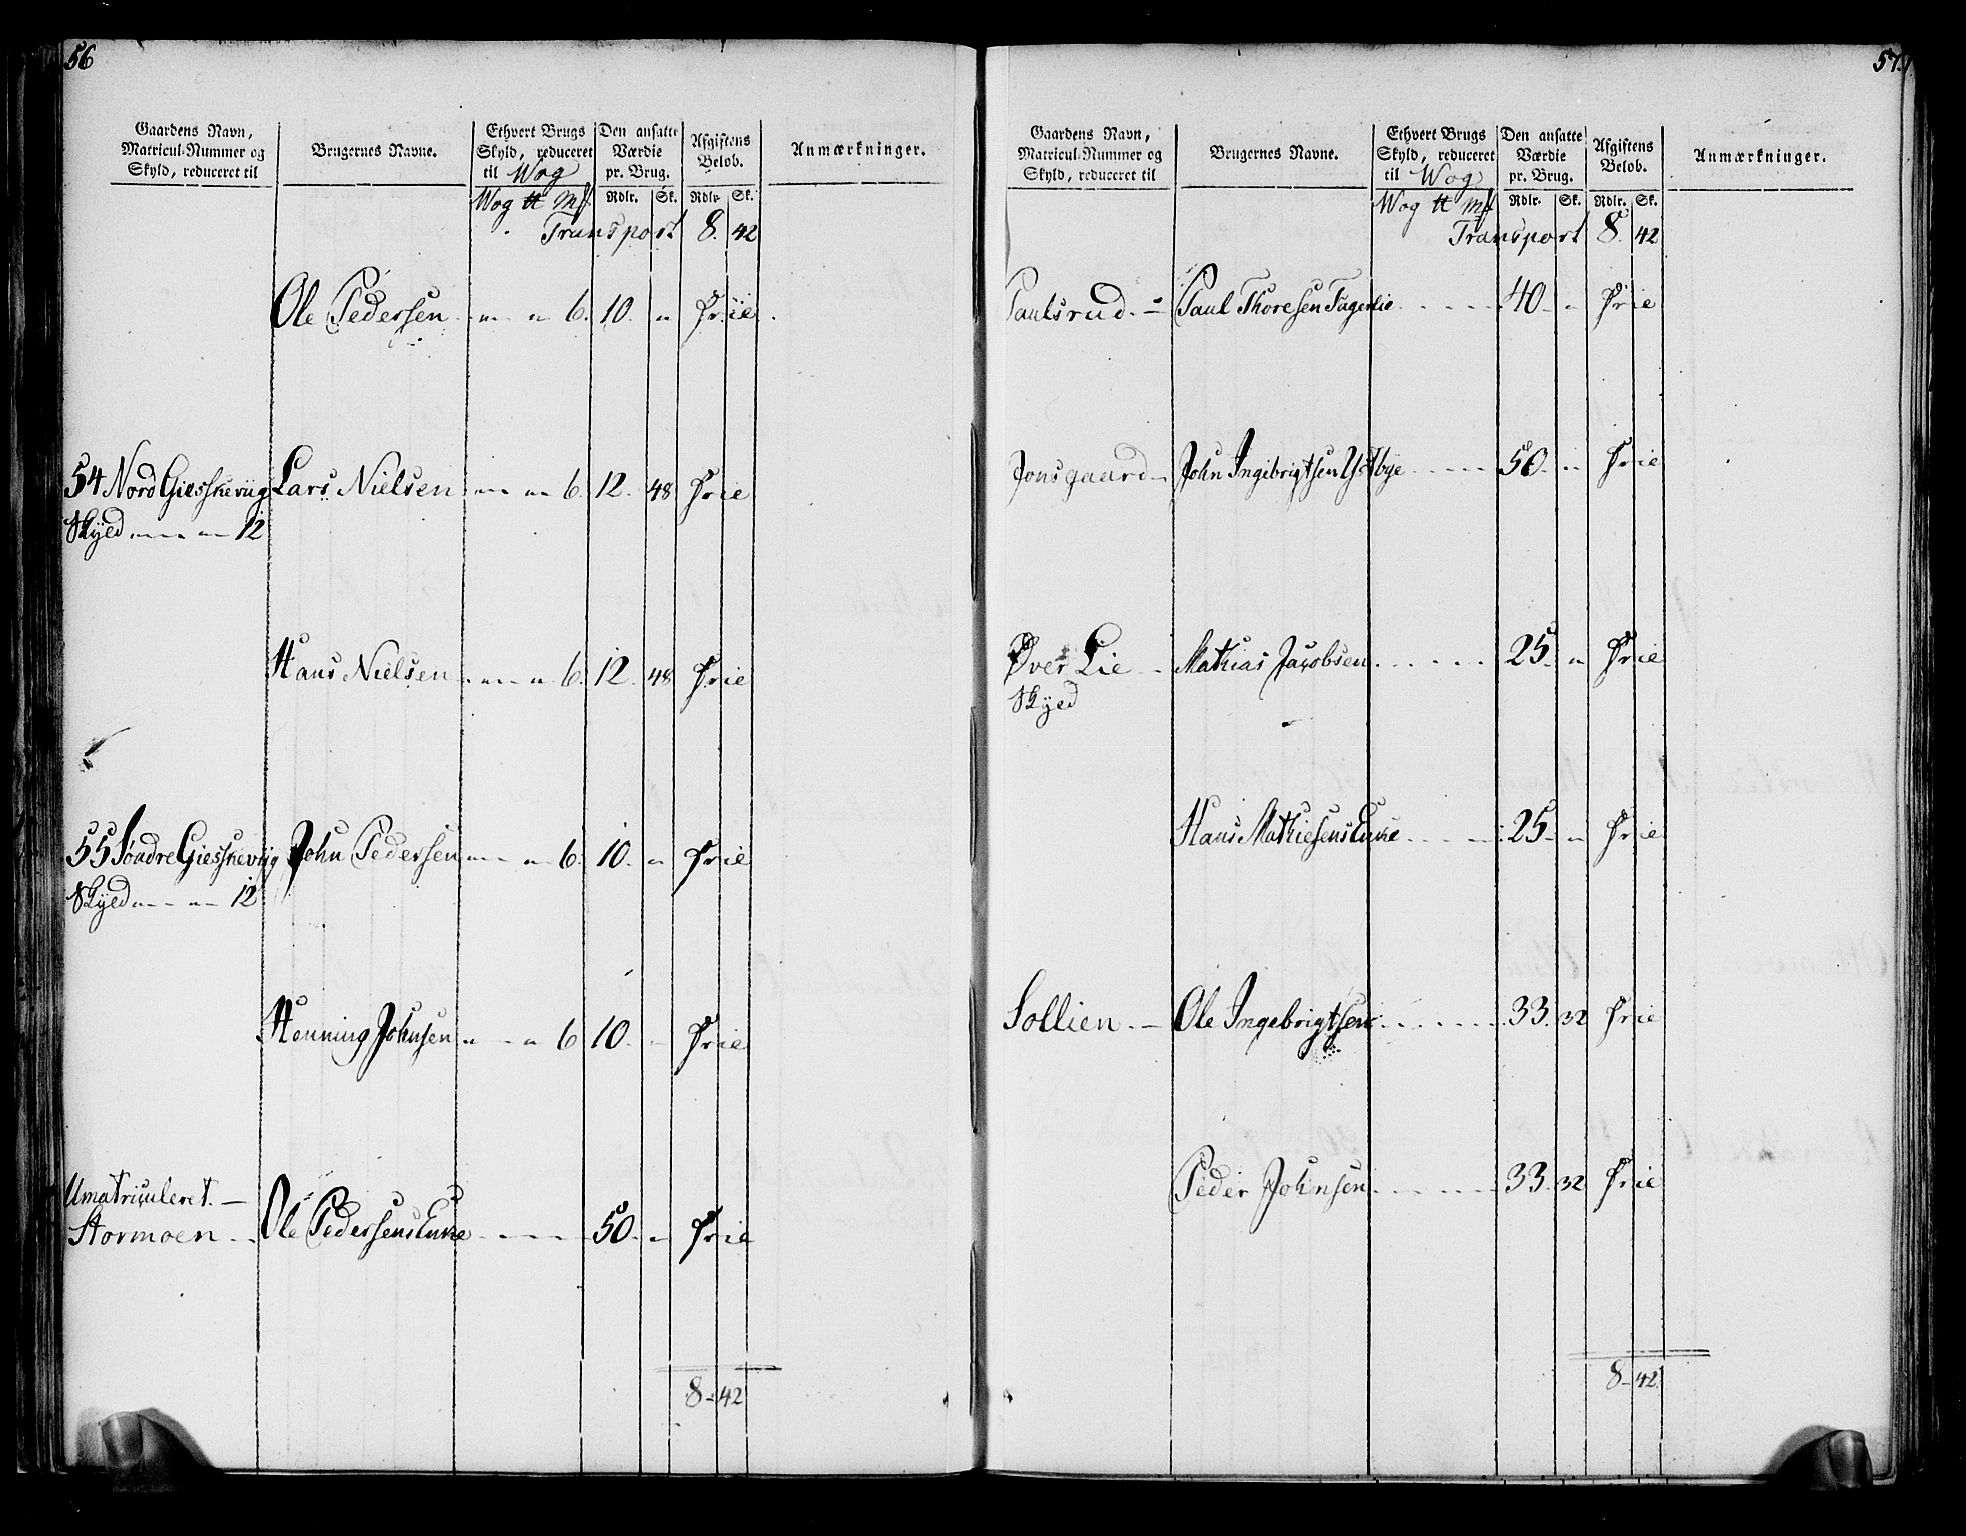 56
Gaardens Navn, Matricul-Nummer og Skyld, reduceret til | Brugernes Navne. | Ethvert Brugs Skyld, reduceret til Wog | Den ansatte Værdie pr. Brug. | Afgiftens Beløb. | Anmærkninger.
Wog ℔ Mk | Rdlr. Sk. | Rdlr. Sk.
Transport 8. 42
Ole Pedersen - " - " 6. 10. " Frie
54 Nord Giesskeviig Lars Nielsen - " - " 6. 12. 48 Frie
Skyld - " - " - 12
Hans Nielsen - " - " 6. 12. 48 Frie
55 Søndre Giesskeviig John Pedersen - " - " 6. 10. " Frie
Skyld - " - " - 12
Henning Johnsen " - " 6 10. - Frie
Umatriculeret. -
Stormoen - Ole Pedersens Enke - - - 50. " Frie
8 - 42
57.
Gaardens Navn, Matricul-Nummer og Skyld, reduceret til | Brugernes Navne. | Ethvert Brugs Skyld, reduceret til Wog | Den ansatte Værdie pr. Brug. | Afgiftens Beløb. | Anmærkninger.
Wog ℔ Mk | Rdlr. Sk. | Rdlr. Sk.
Transport 8. 42
Paulsrud. - Paul Thoresen Fagerlie - - - - 40. " Frie
Jonsgaard - John Ingebrigtsen Ystbye - - - - 50. " Frie
Øver Lie - Mathias Jacobsen - - - - 25. " Frie
Skyld
Hans Mathiesens Enke - - - - 25. " Frie
Sollien - Ole Ingebrigtsen - - - - 33. 32 Frie
Peder Johnsen - - - - 33. 32 Frie
8 - 42.